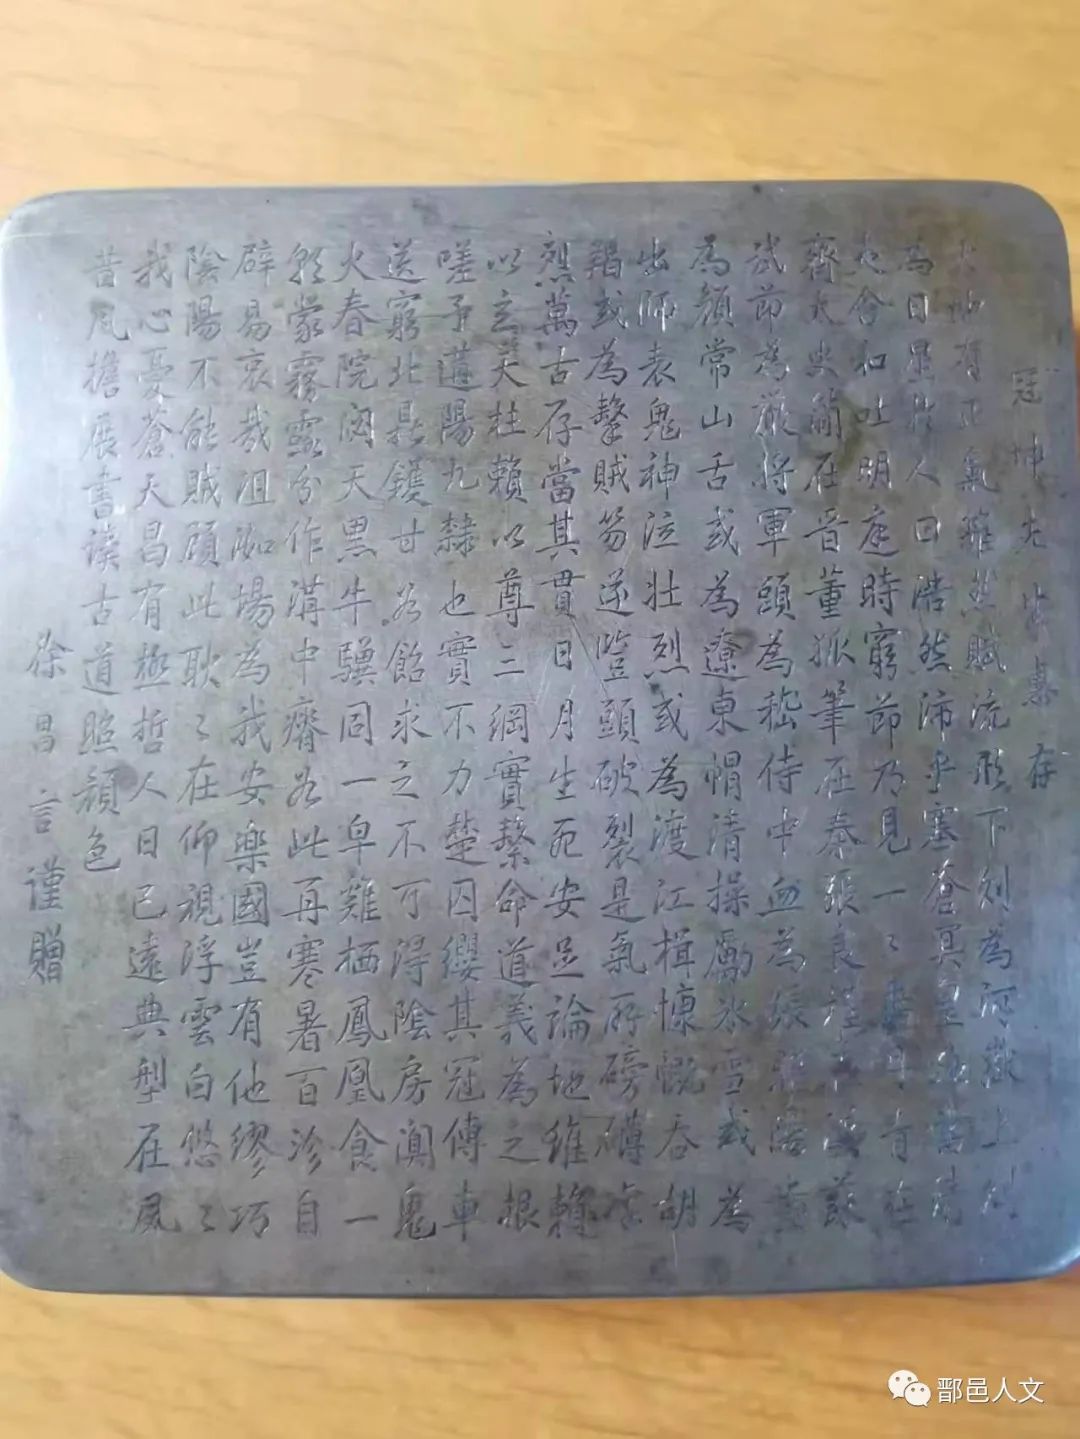 冠坤先生惠存
天地有正氣雜然賦流形下則為河嶽上則
為日星於人曰浩然沛乎塞蒼冥皇路當清
夷含和吐明庭時窮節乃見一〻垂丹青在
齊太史簡在晉董狐筆在秦張良椎在漢蘇
武節為嚴將軍頭為嵇侍中血為張睢陽齒
為顏常山舌或為遼東帽清操勵冰雪或為
出師表鬼神泣壯烈或為渡江楫慷慨吞胡
羯或為擊賊笏逆豎頭破裂是氣所磅礴凜
烈萬古存當其貫日月生死安足論地維賴
以立天柱賴以尊三綱實繫命道義為之根
嗟予遘陽九隸也實不力楚囚纓其冠傳車
送窮北鼎鑊甘若飴求之不可得陰房闃鬼
火春院閟天黑牛驥同一皁雞栖鳳凰食一
朝蒙霧露分作溝中瘠若此再寒暑百沴自
辟易哀哉沮洳場為我安樂國豈有他繆巧
陰陽不能賊顧此耿〻在仰視浮雲白悠〻
我心憂蒼天曷有極哲人日已遠典型在夙
昔風檐展書讀古道照顏色
徐昌言謹贈
鄑邑人文